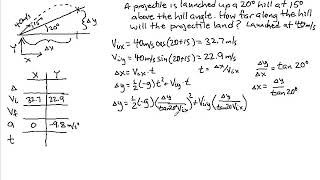 A projectile is launched up a 20° hill at 15°
above the hill angle. How far along the hill
will the projectile land? Launched at 40m/s
40m/s
15°
20°
Δy
Δx
Y
X
Vix = 40m/s cos(20+15) = 32.7 m/s
Viy = 40m/s sin(20+15) = 22.9 m/s
Δx = Vix · t
t = Δx/Vix
Δy = (½)(-g)t² + Viy t
Δy = (½)(-g)(Δy/tan20° Vix)² + Viy(Δy/tan20° Vix)
Δy/Δx = tan 20°
Δx = Δy/tan20°
X Y
Δ
Vi 32.7 22.9
Vf
a 0 -9.8 m/s²
t